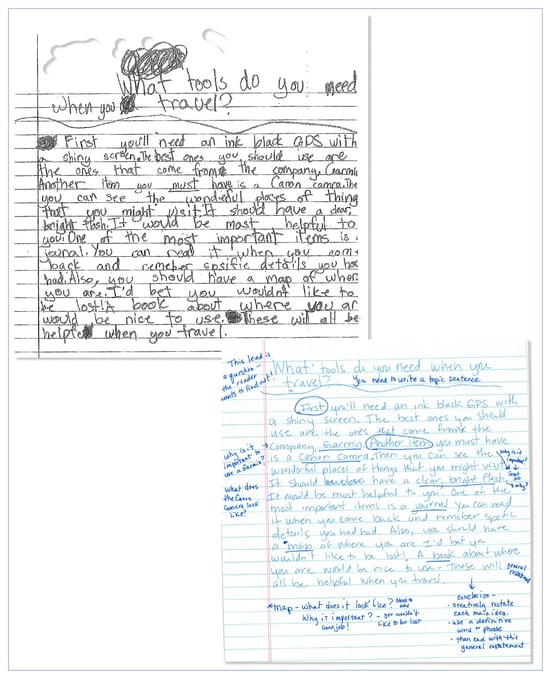 What tools do you need
when you travel?
First you'll need an ink black GPS with
a shiny screen. The best ones you should use are
the ones that come from the company, Garmin
Another item you must have is a Canon camra. The
you can see the wonderful places of thing
that you might visit. It should have a clear,
bright flash. It would be most helpful to
you. One of the most important items is
journal. You can read it when you com
back and remeber spsific details you ha
had. Also, you should have a map of wher
you are. I'd bet you wouldn't like to
be lost! A book about where you ar
would be nice to use. These will all be
helpful when you travel.
This lead is
a question -
the reader
wants to find out!
What tools do you need when you
travel?
You need to write a topic sentence
First you'll need an ink black GPS with
a shiny screen. The best ones you should
use are the ones that come from the
company, Garmin. Another item you must have
is a Canon camra. Then you can see the
wonderful places of things that you might visit.
It should have a clear, bright flash.
It would be most helpful to you. One of the
most important items is a journal. You can read
it when you come back and remeber spsific
details you had had. Also, you should have
a map of where you are I'd bet you
wouldn't like to be lost! A book about where
you are would be nice to use. These will
all be helpful when you travel.
Why is it
important to
use a Garmin?
What does
the Canon
camera look
like?
Why is it
important?
Why?
general restatement
*map - what does it look like? Need to add
Why is it important? - you wouldn't
like to be lost
Good job!
conclusion -
• creatively restate
each main idea.
• use a definitive
word or phrase
• then end with this
general restatement